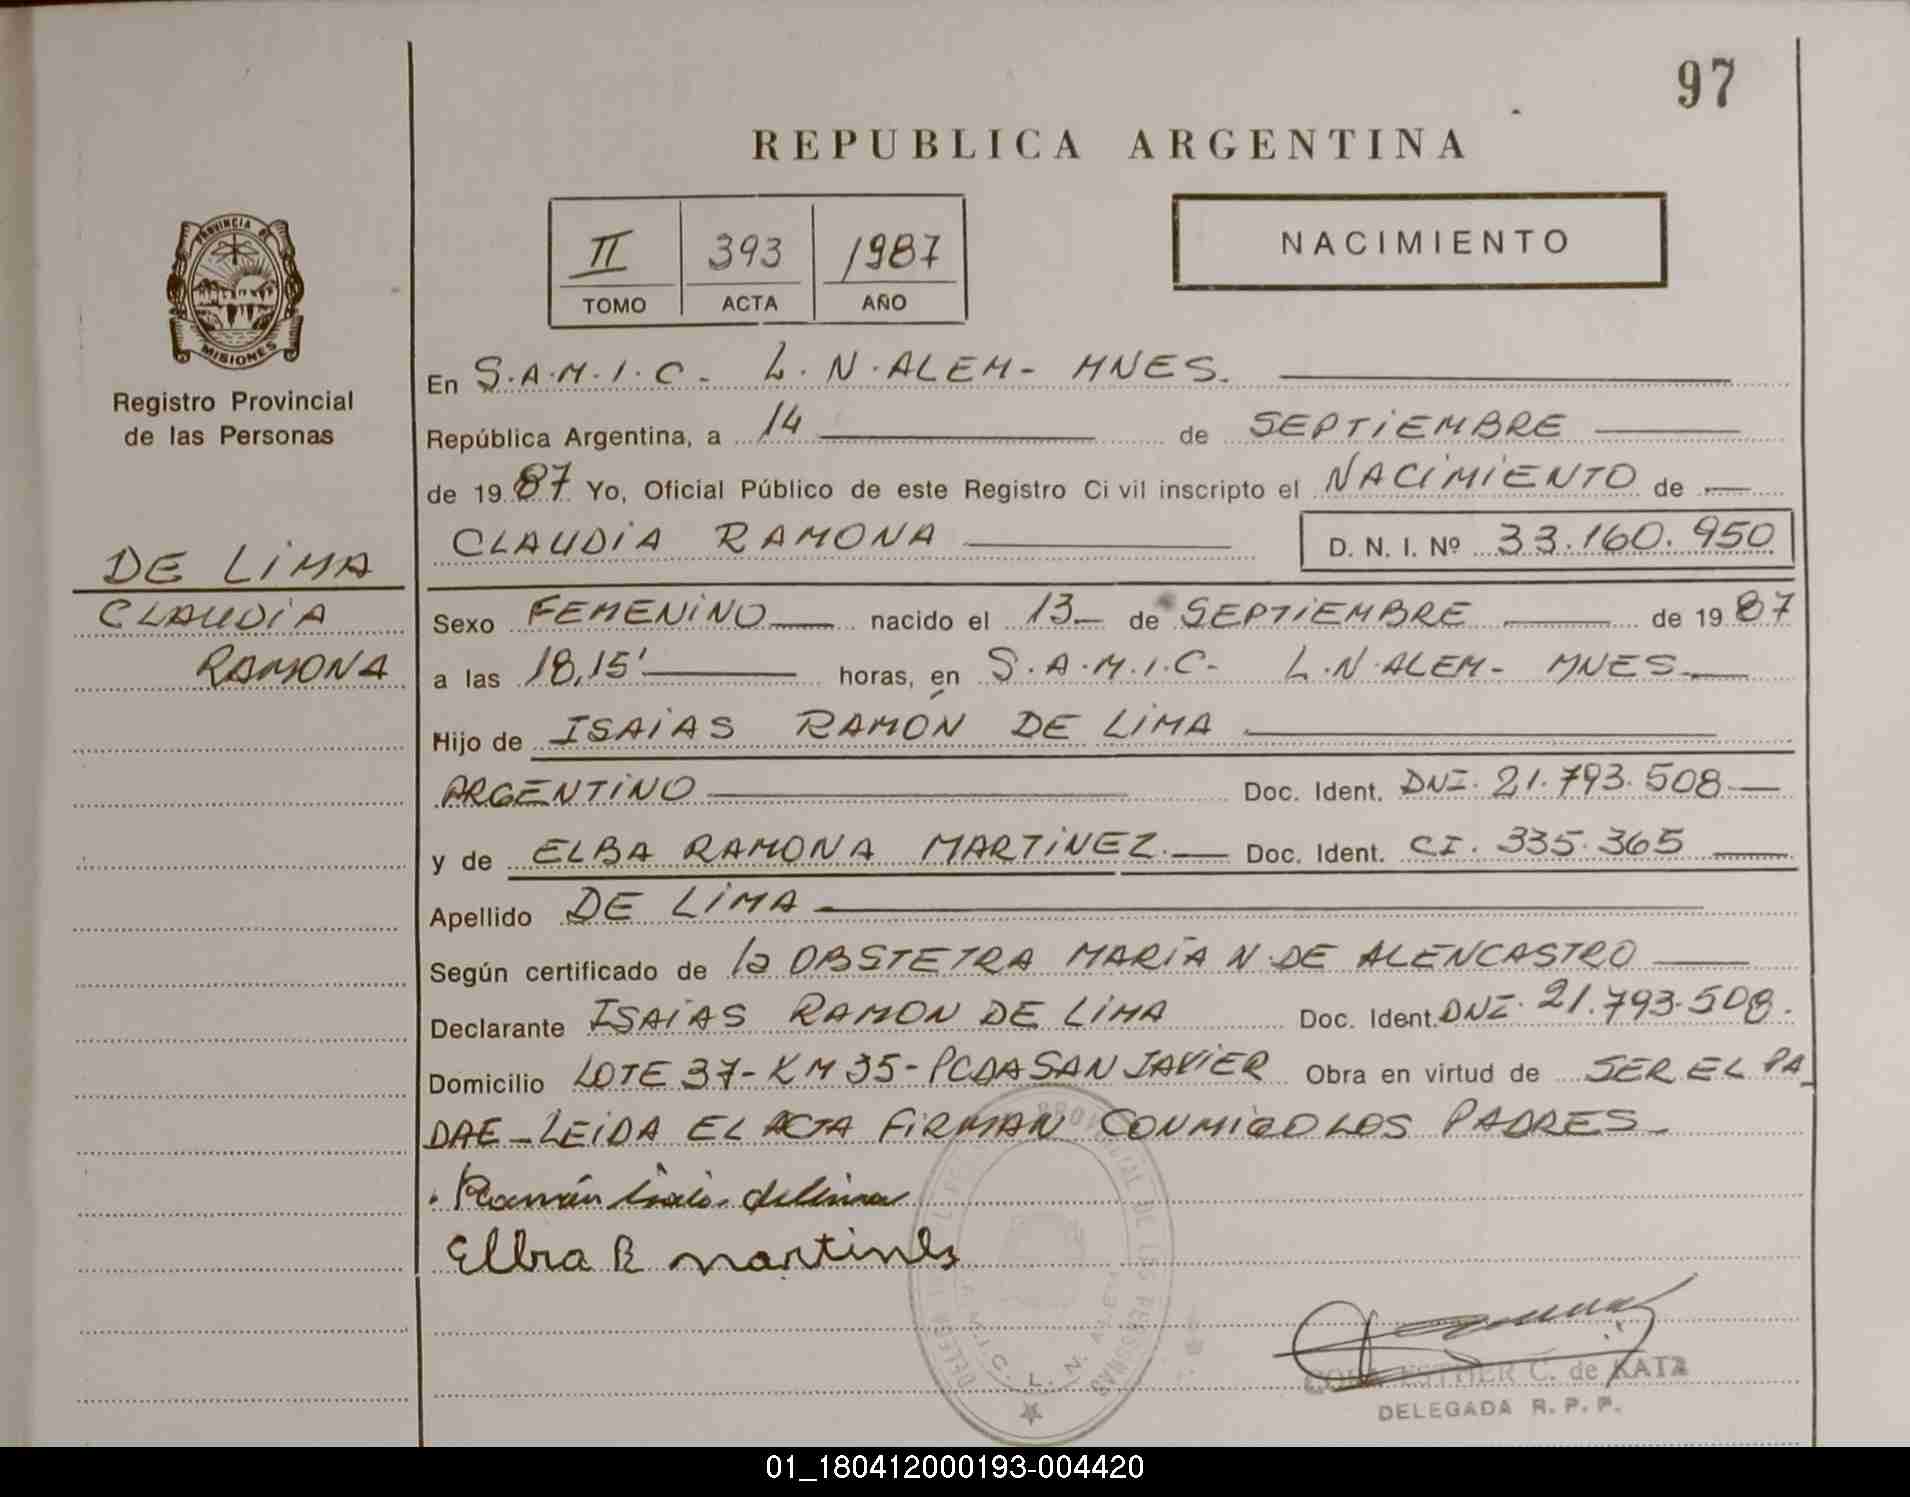 97
REPUBLICA ARGENTINA
II 393 1987
TOMO ACTA AÑO
NACIMIENTO
PROVINCIA DE
MISIONES
Registro Provincial
de las Personas
DE LIMA
CLAUDIA
RAMONA
En S.A.M.I.C. L.N.ALEM- MNES.
República Argentina, a 14 de SEPTIEMBRE
de 1987 Yo, Oficial Público de este Registro Ci vil inscripto el NACIMIENTO de
CLAUDIA RAMONA D. N. I. Nº 33.160.950
Sexo FEMENINO nacido el 13 de SEPTIEMBRE de 1987
a las 18,15' horas, en S.A.M.I.C- L.N.ALEM- MNES
Hijo de ISAIAS RAMÓN DE LIMA
ARGENTINO Doc. Ident. DNI. 21.793.508
y de ELBA RAMONA MARTINEZ. Doc. Ident. CI. 335.365
Apellido DE LIMA
Según certificado de la OBSTETRA MARÍA N.DE ALENCASTRO
Declarante ISAIAS RAMON DE LIMA Doc. Ident. DNI. 21.793.508.
Domicilio LOTE 37-KM 35-PCDA SAN JAVIER Obra en virtud de SER EL PA
DRE-LEIDA EL ACTA FIRMAN CONMIGO LOS PADRES
Ramón Isaias delima
Elbra R martines
S.A.M.I.C. L. N. ALEM
ESTHER C. de KATZ
DELEGADA R. P. P.
01_180412000193-004420